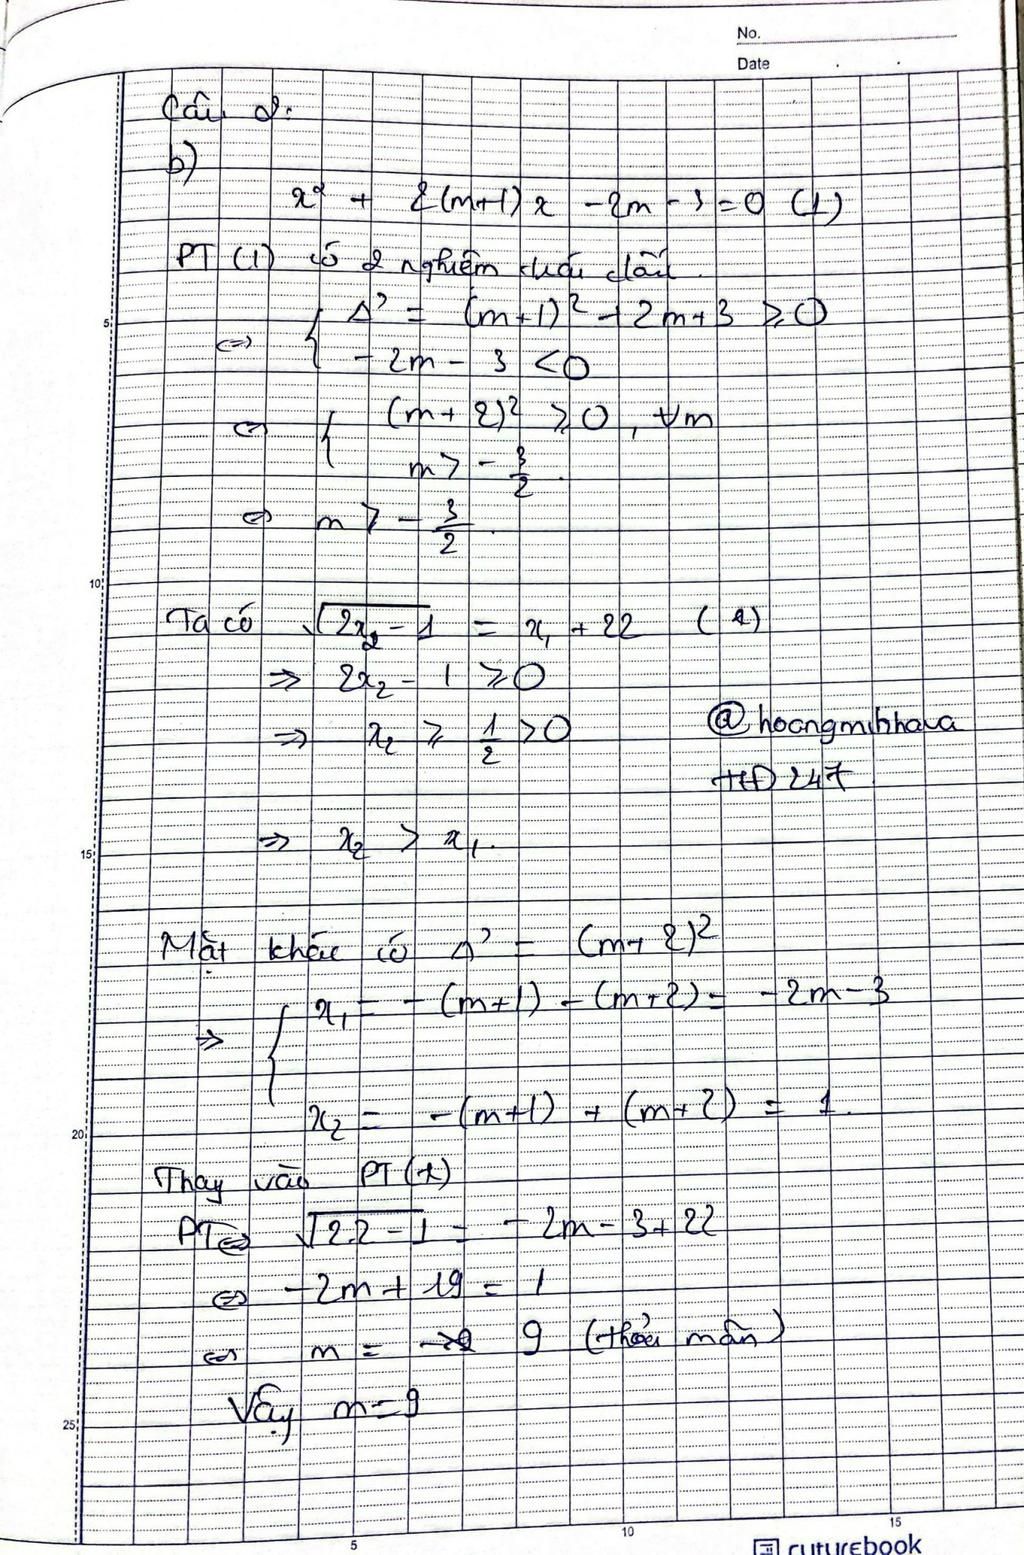 No.
Date
Câu 2:
b)
x² + 2(m+1)x - 2m - 3 = 0 (1)
PT (1) có 2 nghiệm trái dấu.
⇔ { Δ' = (m+1)² + 2m+3 ≥ 0
- 2m - 3 < 0
⇔ { (m + 2)² ≥ 0, ∀m
m > - 3/2.
⇔ m > - 3/2.
Ta có √(2x₂ - 1) = x₁ + 22 (2)
⇒ 2x₂ - 1 ≥ 0
⇒ x₂ ≥ 1/2 > 0
@hoangminhhava
THD 247
⇒ x₂ > x₁.
Mặt khác có Δ' = (m+2)²
⇒ { x₁ = - (m+1) - (m+2) = -2m-3
x₂ = -(m+1) + (m+2) = 1.
Thay vào PT
PT ⇔ √(2.2 - 1) = - 2m - 3 + 22
⇔ -2m + 19 = 1
⇔ m = 9 (thỏa mãn)
Vậy m = 9
5
10
15
20
25
5
10
15
FUTUREBOOK